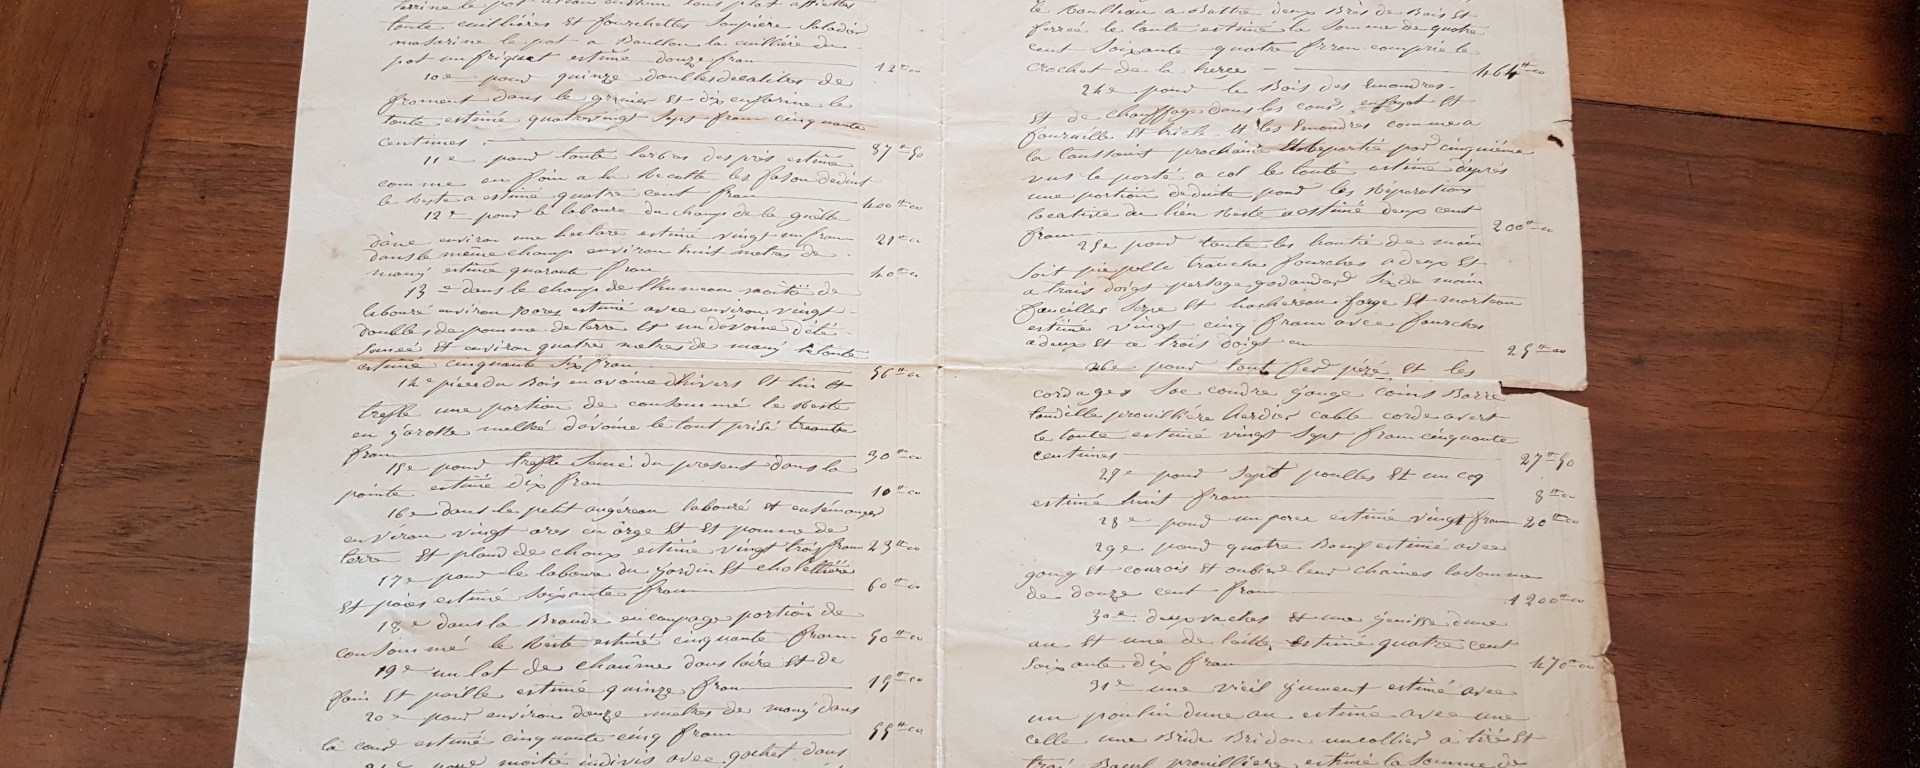 toute cuillières et fourchettes soupière saladier
masarine le pot a Bouillon la cuillière du
pot un friquet estimé douze fran 12 "
10e pour quinze doubles decalitres de
froment dans le grenier et dix en farine le
toute estimé quatrevingt sept fran cinquante
centimes 87 " 50
11e pour toute lerbes des prés estimé
comme en foin a la Recolte les fason deduit
le Reste a estimé quatre cent fran 400 "
12e pour le laboure du champ de la quëtte
dâne environ une hectare estimé vingt un fran 21 "
dans le même champ environ huit metres de
manij estimé quarante fran 40 "
13e dans le champ de moitié de
laboure environ estimé avec environ vingt
doubles de pomme de terre et un davoine dété
semeé et environ quatre metres de manij le toute
estimé cinquante six fran 56 "
14e piece du Bois en avoine dhivers et lin et
trefle une portion de consommé le Reste
en jarotte mellée davoine le tout prisé trente
fran 30 "
15e pour trefle semé du present dans la
pointe estimé dix fran 10 "
16e dans le petit labouré et ensemancer
environ vingt ares en orge et et pomme de
terre et pland de choux estimé vingt trois fran 23 "
17e pour le laboure du jardin et
et poies estimé soixante fran 60 "
18e dans la Brande en coupage portion de
consommé le Reste estimé cinquante fran 50 "
19e un lot de chaûme dans laire et de
foin et paille estimé quinze fran 15 "
20e pour environ douze metres de manij dans
la cour estimé cinquante cinq fran 55 "
21e pour moitié indivis avec dans
le Roulleau a Battre deux Brës de Bois et
ferreé le toute estimé la somme de quatre
cent soixante quatre fran comprie le
crochet de la herce 464 "
24e pour le Bois des Emondres
et de chauffage dans les cours en fagot et
fournille et triche et les Emondres comme a
la toussaint prochaine et Repartie par cinquiéme
vus le porté a col le toute estimé daprés
une portion deduite pour les Réparations
locative du lieu Reste a estimé deux cent
fran 200 "
25e pour toute les houtié de main
soit pic pelle tranche fourches a deux et
a trois doigt six de main
faucilles et hachereau forge et marteau
estimé vingt cinq fran avec fourches
a deux et a trois doigt 25 "
26e pour tout fer pézé et les
cordages soc coudre gouge coins Barre
cable corde avert
le toute estimé vingt sept fran cinquante
centimes 27 " 50
27e pour sept poulles et un coq
estimé huit fran 8 "
28e pour un porc estimé vingt fran 20 "
29e pour quatre Boeuf estimé avec
goug et courois et leur chaines la somme
de douze cent fran 1200 "
30e deux vaches et une genisse dune
an et une de laitte estimé quatre cent
soixante dix fran 470 "
31e une vieil jument estimé avec
un poulin dune an estimé avec une
celle une Bride Bridon un collier a tiré et
trai Boeuf prouilliere estimé la somme de